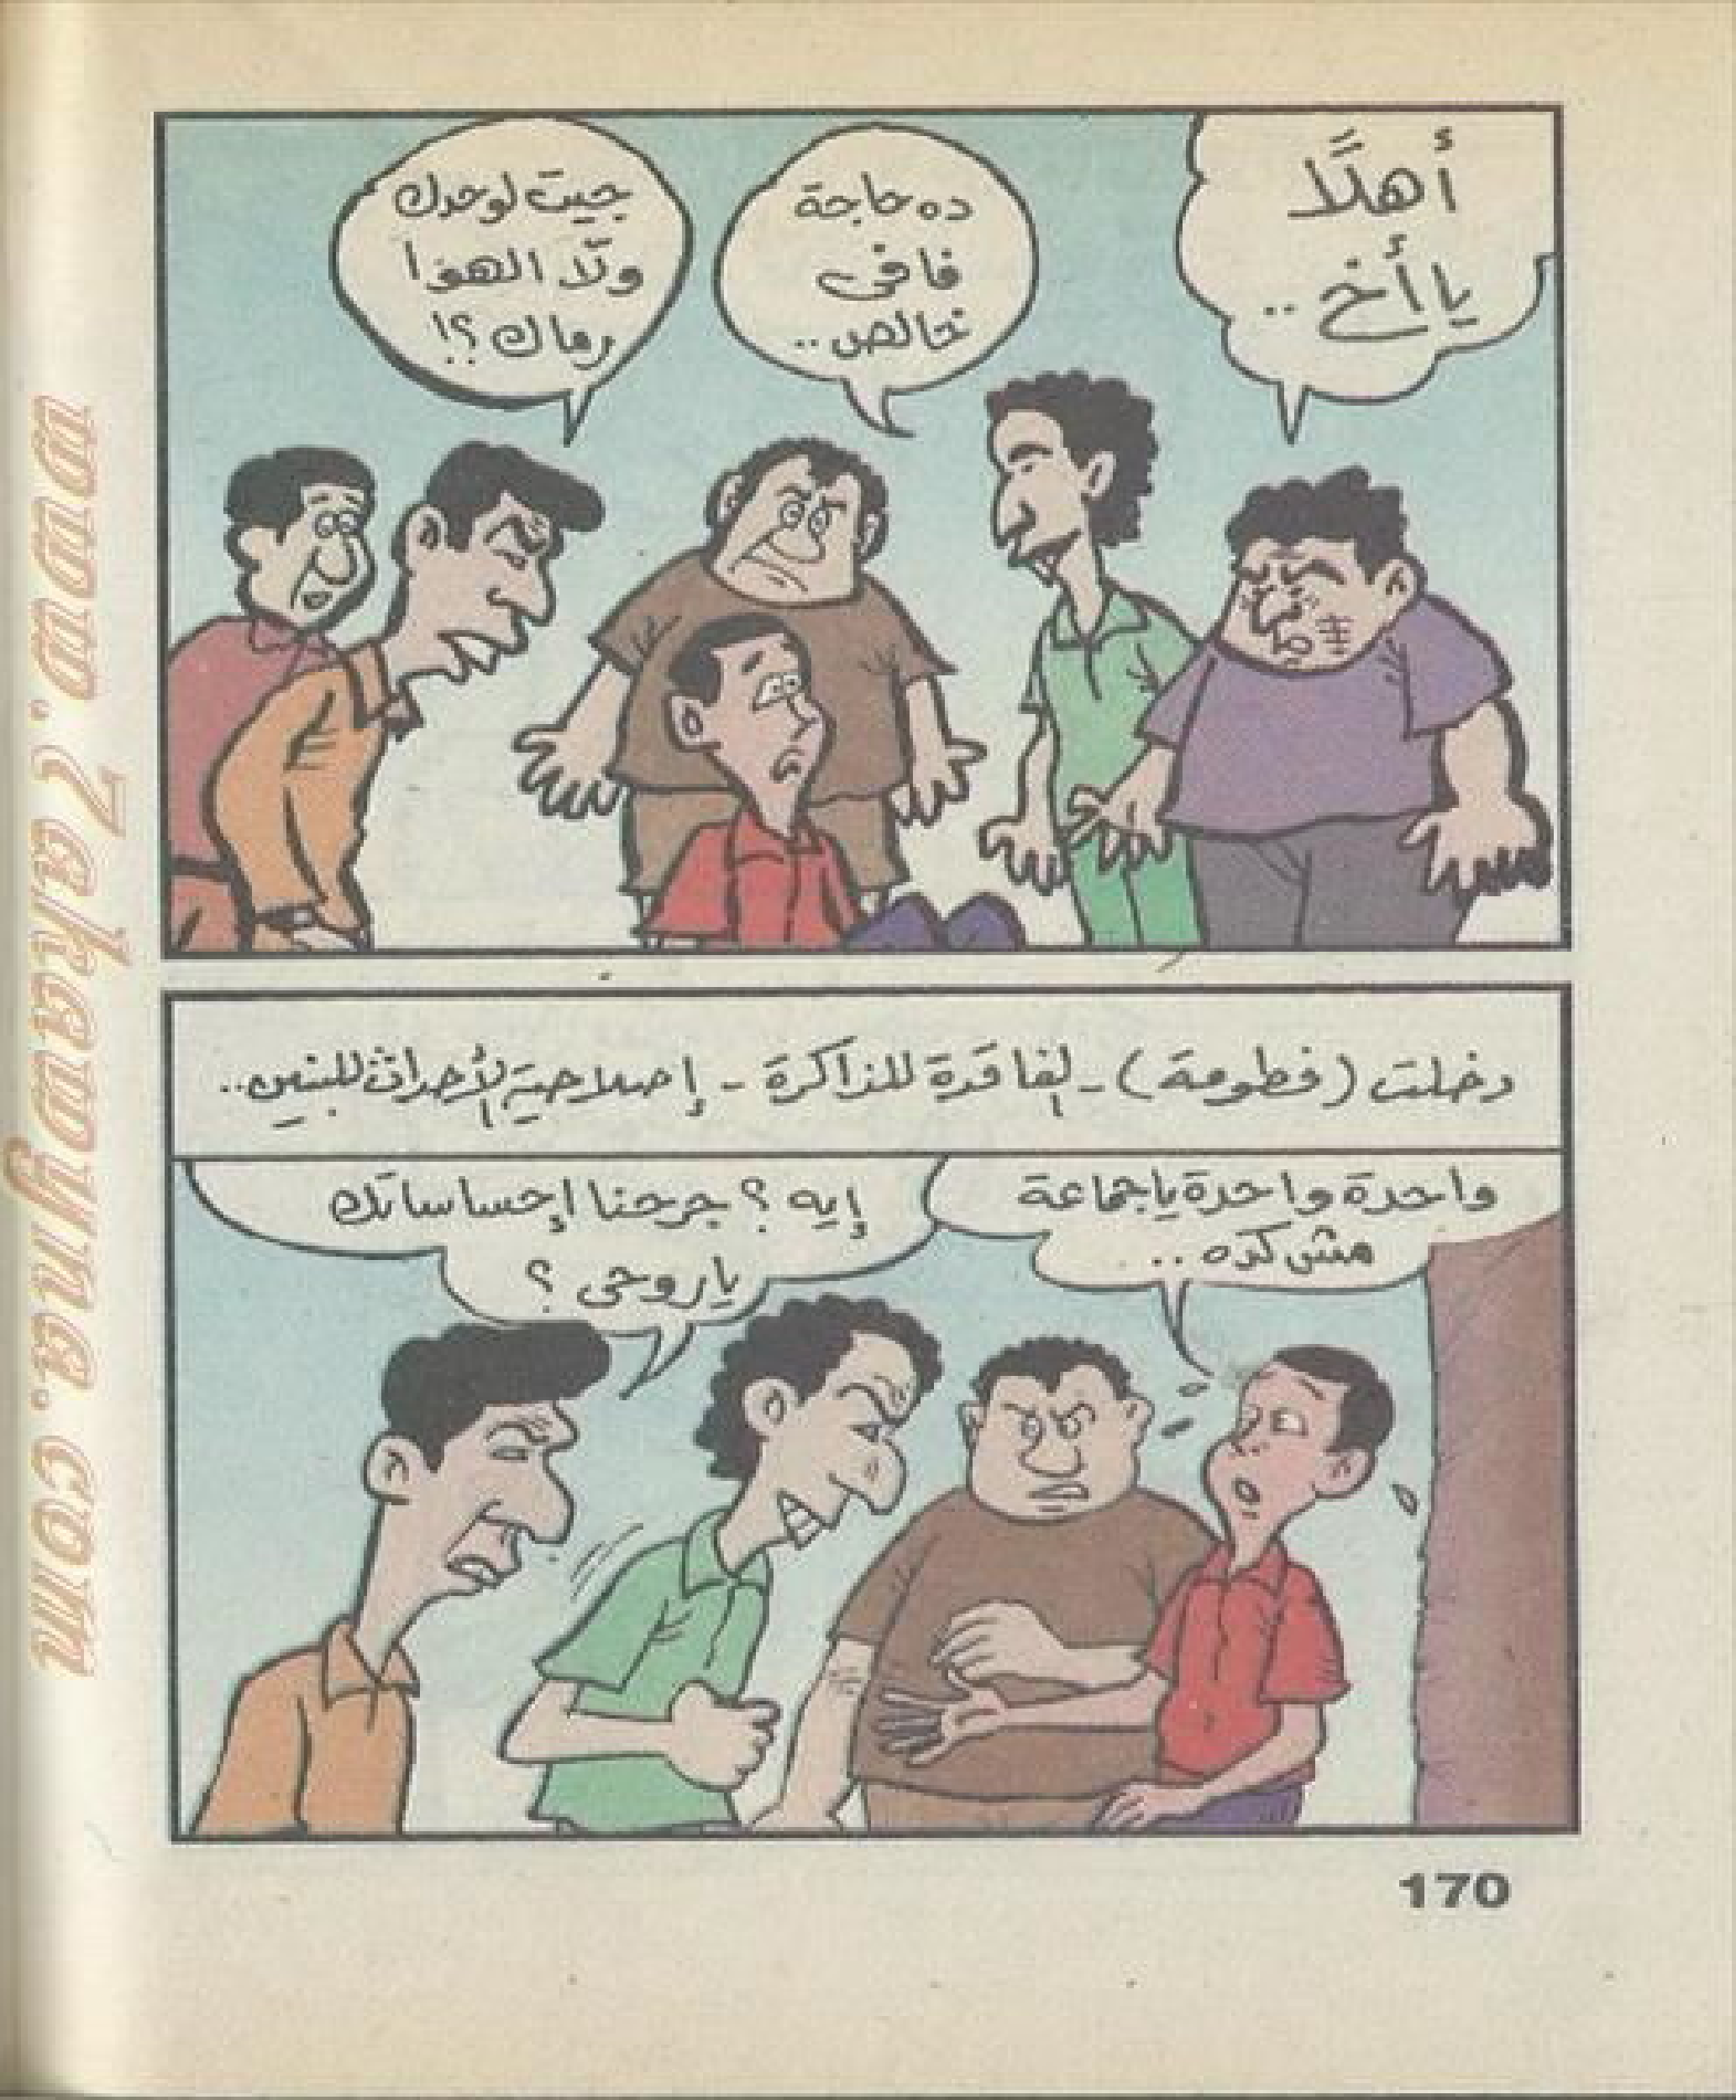 أهلًا
يا أخ ..
ده حاجة
فافى
خالص ..
جيت لوحدك
ولّا الهوا
رماك ؟!
دخلت (فطومة) - الفاقدة للذاكرة - إصلاحية الأحداث للبنين ..
واحدة واحدة يا جماعة
مش كده ..
إيه ؟ جرحنا إحساساتك
يا روحى ؟
170
www.7akaayna.com